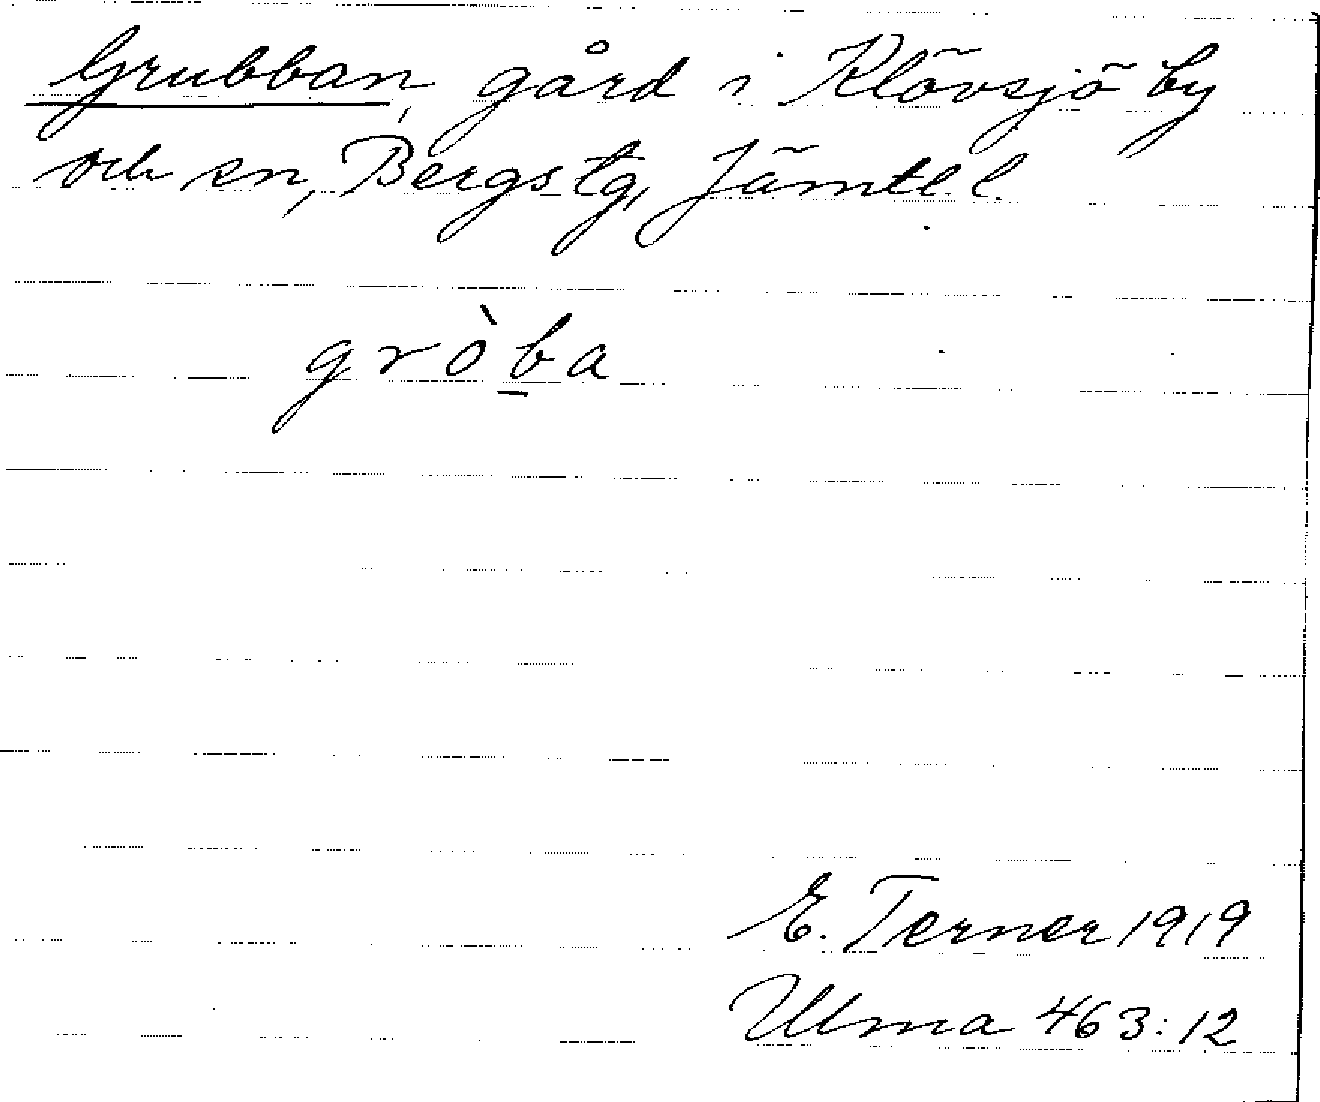 Grubban, gård i Klövsjö by
och sn, Bergs tg, Jämtl. l.
gròb̲a
E. Terner 1919
Ulma 463:12